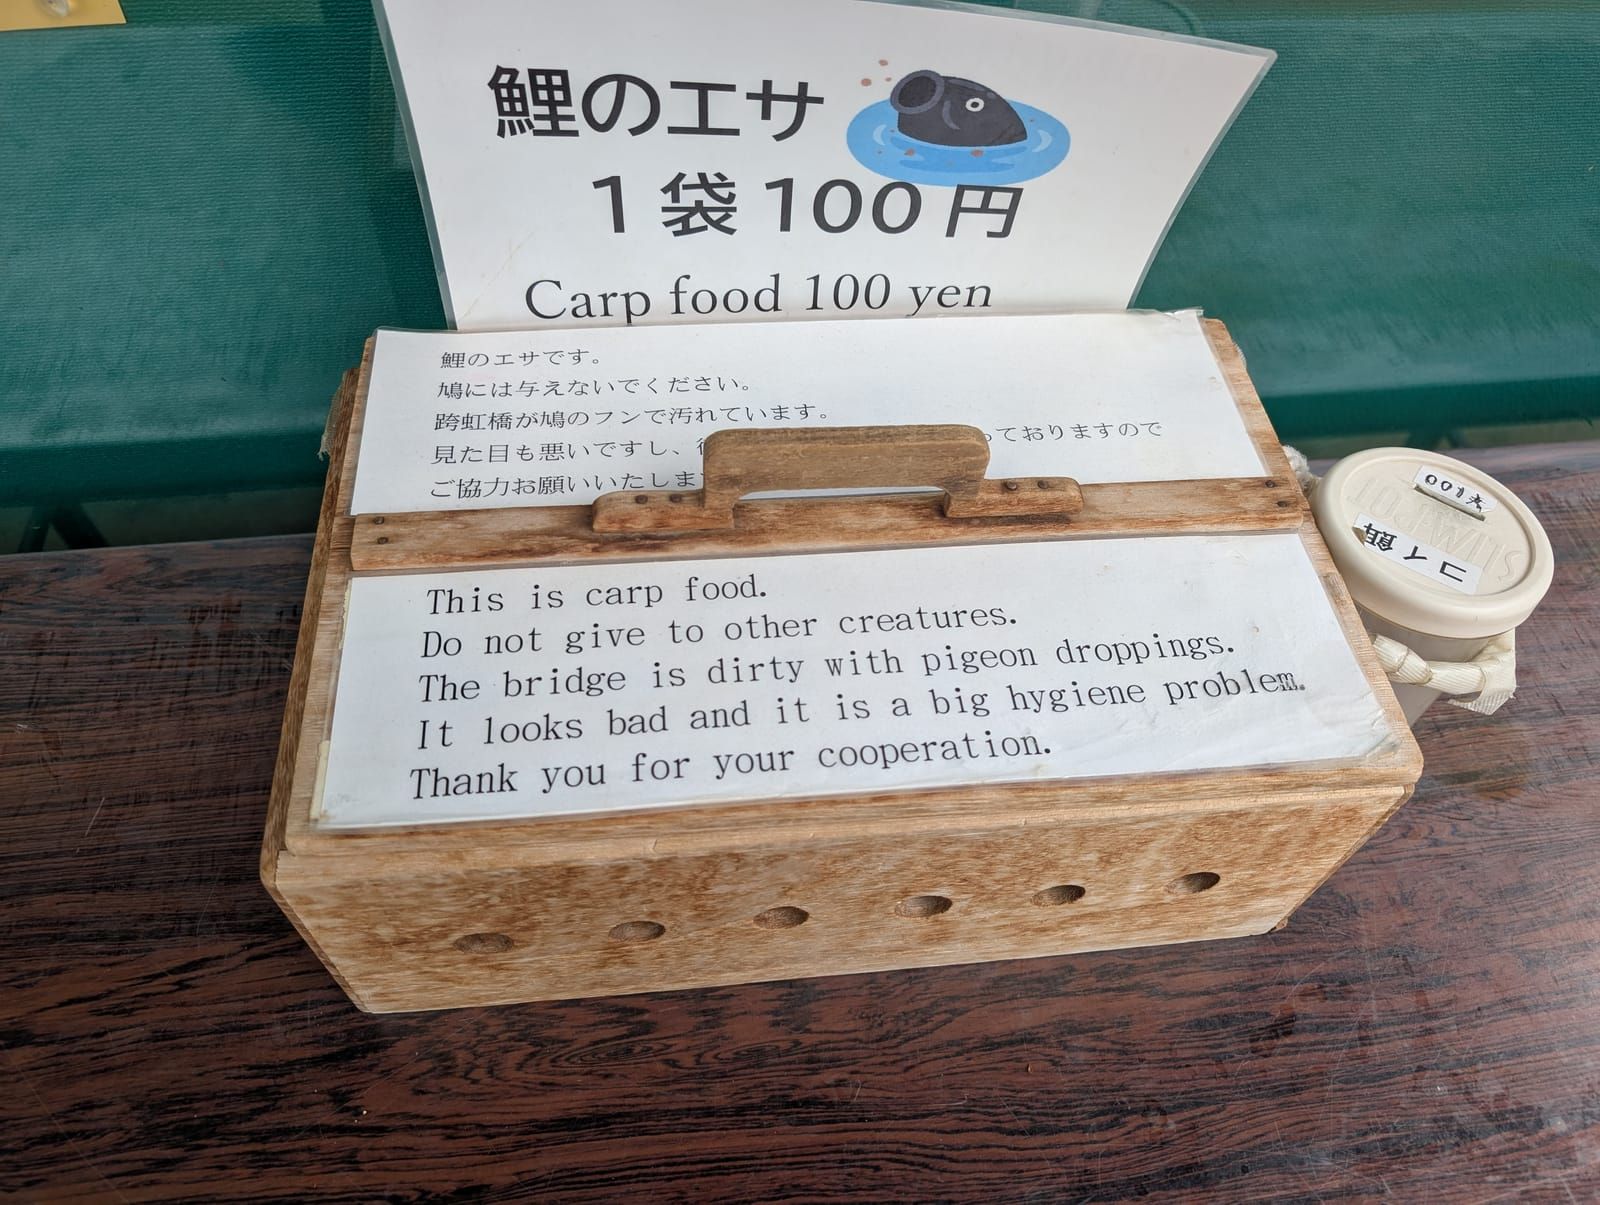 鯉のエサ
1袋100円
Carp food 100 yen
鯉のエサです。
鳩には与えないでください。
跨虹橋が鳩のフンで汚れています。
見た目も悪いですし、 っておりますので
ご協力お願いいたしま
This is carp food.
Do not give to other creatures.
The bridge is dirty with pigeon droppings.
It looks bad and it is a big hygiene problem.
Thank you for your cooperation.
コイ餌
SLIMPOT